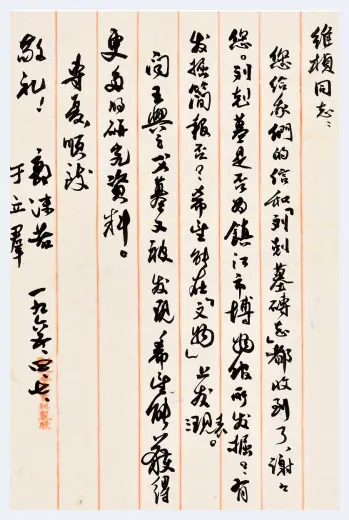 維楨同志：
您给我們的信和「刘剋墓磚志」都收到了，谢々
您。刘剋墓是否为鎮江市博物馆所发掘？有
发掘簡报否？希望能在“文物”上发表。
闻王興之父墓又被发现，希望能获得
更多的研究資料。
专复，顺致
敬礼！ 郭沫若
于立群
一九六六、四、七、